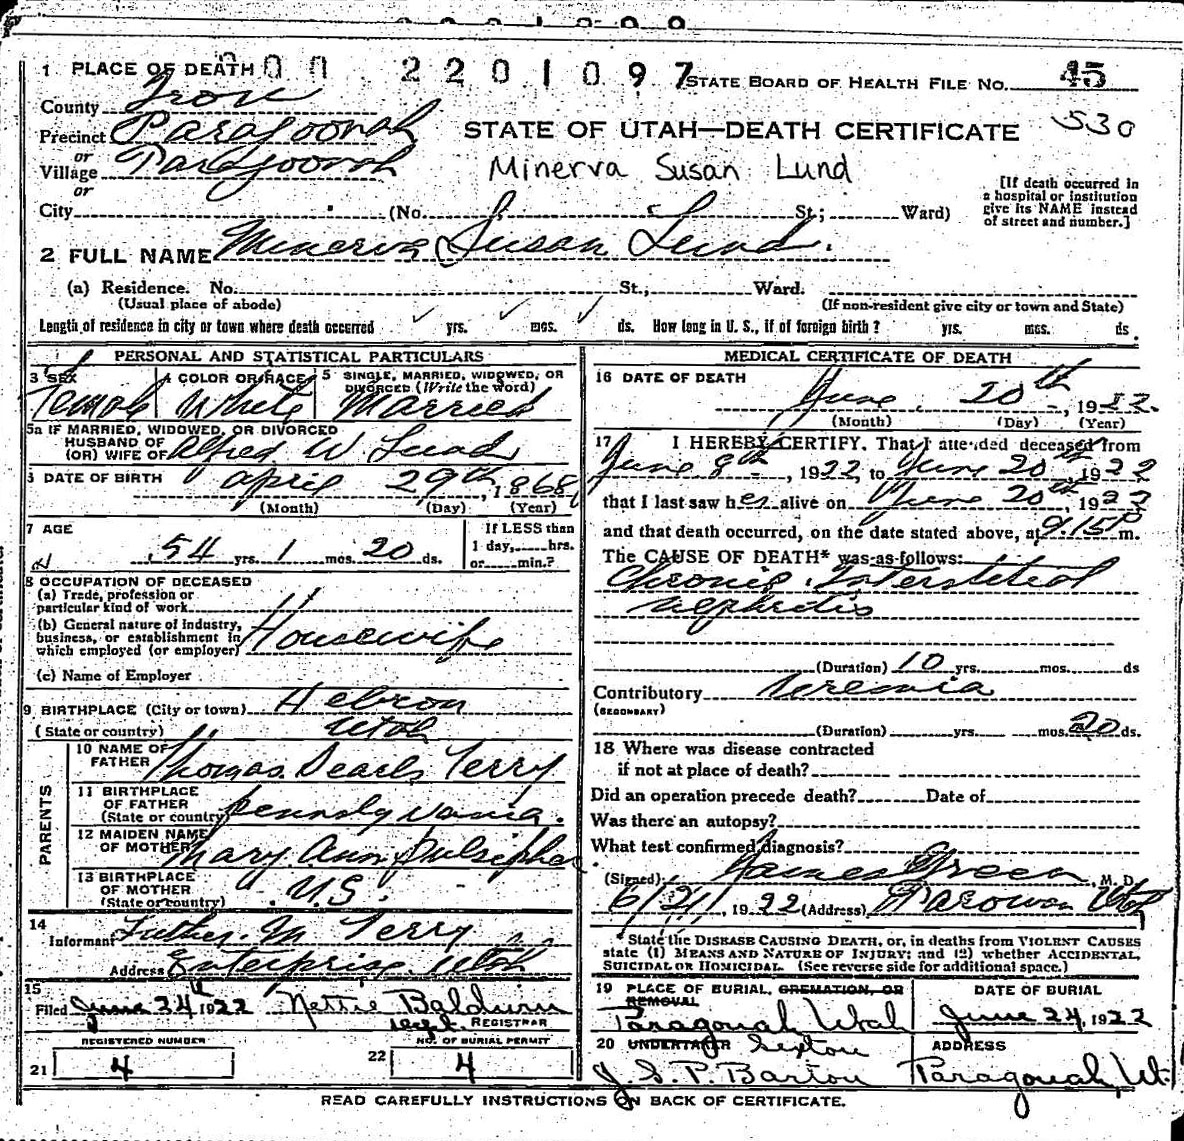 1 PLACE OF DEATH 00 2201097 STATE BOARD OF HEALTH FILE NO. 45
County Iron
530
Precinct Paragoonah STATE OF UTAH—DEATH CERTIFICATE
or
Village Paragoonah Minerva Susan Lund
or
[If death occurred in a hospital or institution give its NAME instead of street and number.]
City (No. St.; Ward)
2 FULL NAME Minerva Susan Lund.
(a) Residence. No. St., Ward.
(Usual place of abode) (If non-resident give city or town and State)
Length of residence in city or town where death occurred yrs. mos. ds. How long in U. S., if of foreign birth? yrs. mos. ds.
PERSONAL AND STATISTICAL PARTICULARS
3 SEX 4 COLOR OR RACE 5 SINGLE, MARRIED, WIDOWED, OR DIVORCED (Write the word)
Female White Married
5a IF MARRIED, WIDOWED, OR DIVORCED
HUSBAND OF
(OR) WIFE OF Alfred W. Lund
6 DATE OF BIRTH April 29th, 1868
(Month) (Day) (Year)
7 AGE If LESS than
54 yrs. 1 mos. 20 ds. 1 day, hrs.
or min.?
8 OCCUPATION OF DECEASED
(a) Trade, profession or
particular kind of work
(b) General nature of Industry,
business, or establishment in
which employed (or employer) Housewife
(c) Name of Employer
9 BIRTHPLACE (City or town) Hebron
(State or country) Utah
PARENTS
10 NAME OF
FATHER Thomas Searls Terry
11 BIRTHPLACE
OF FATHER
(State or country) Pennsylvania.
12 MAIDEN NAME
OF MOTHER Mary Ann Pulsipher
13 BIRTHPLACE
OF MOTHER
(State or country) U.S.
14
Informant Luther M Terry
Address Enterprise, Utah
15
Filed June 24th 1922 Nettie Baldwin
REGISTRAR
REGISTERED NUMBER NO. OF BURIAL PERMIT
21 4 22 4
MEDICAL CERTIFICATE OF DEATH
16 DATE OF DEATH
June 20th, 1922.
(Month) (Day) (Year)
17 I HEREBY CERTIFY, That I attended deceased from
June 8th, 1922, to June 20th, 1922
that I last saw her alive on June 20th, 1922
and that death occurred, on the date stated above, at 9.15P m.
The CAUSE OF DEATH* was as follows:
Chronic Interstitial
Nephritis
(Duration) 10 yrs. mos. ds
Contributory Uremia
(SECONDARY)
(Duration) yrs. mos. 20 ds.
18 Where was disease contracted
if not at place of death?
Did an operation precede death? Date of
Was there an autopsy?
What test confirmed diagnosis?
(Signed) James Green, M. D.
6/21, 1922 (Address) Parowan Utah
* State the DISEASE CAUSING DEATH, or, in deaths from VIOLENT CAUSES
state (1) MEANS AND NATURE OF INJURY; and (2) whether ACCIDENTAL,
SUICIDAL OR HOMICIDAL. (See reverse side for additional space.)
19 PLACE OF BURIAL, CREMATION, OR REMOVAL DATE OF BURIAL
Paragonah Utah June 24, 1922
20 UNDERTAKER Sexton ADDRESS
J. S. P. Barton Paragonah, Ut.
READ CAREFULLY INSTRUCTIONS ON BACK OF CERTIFICATE.